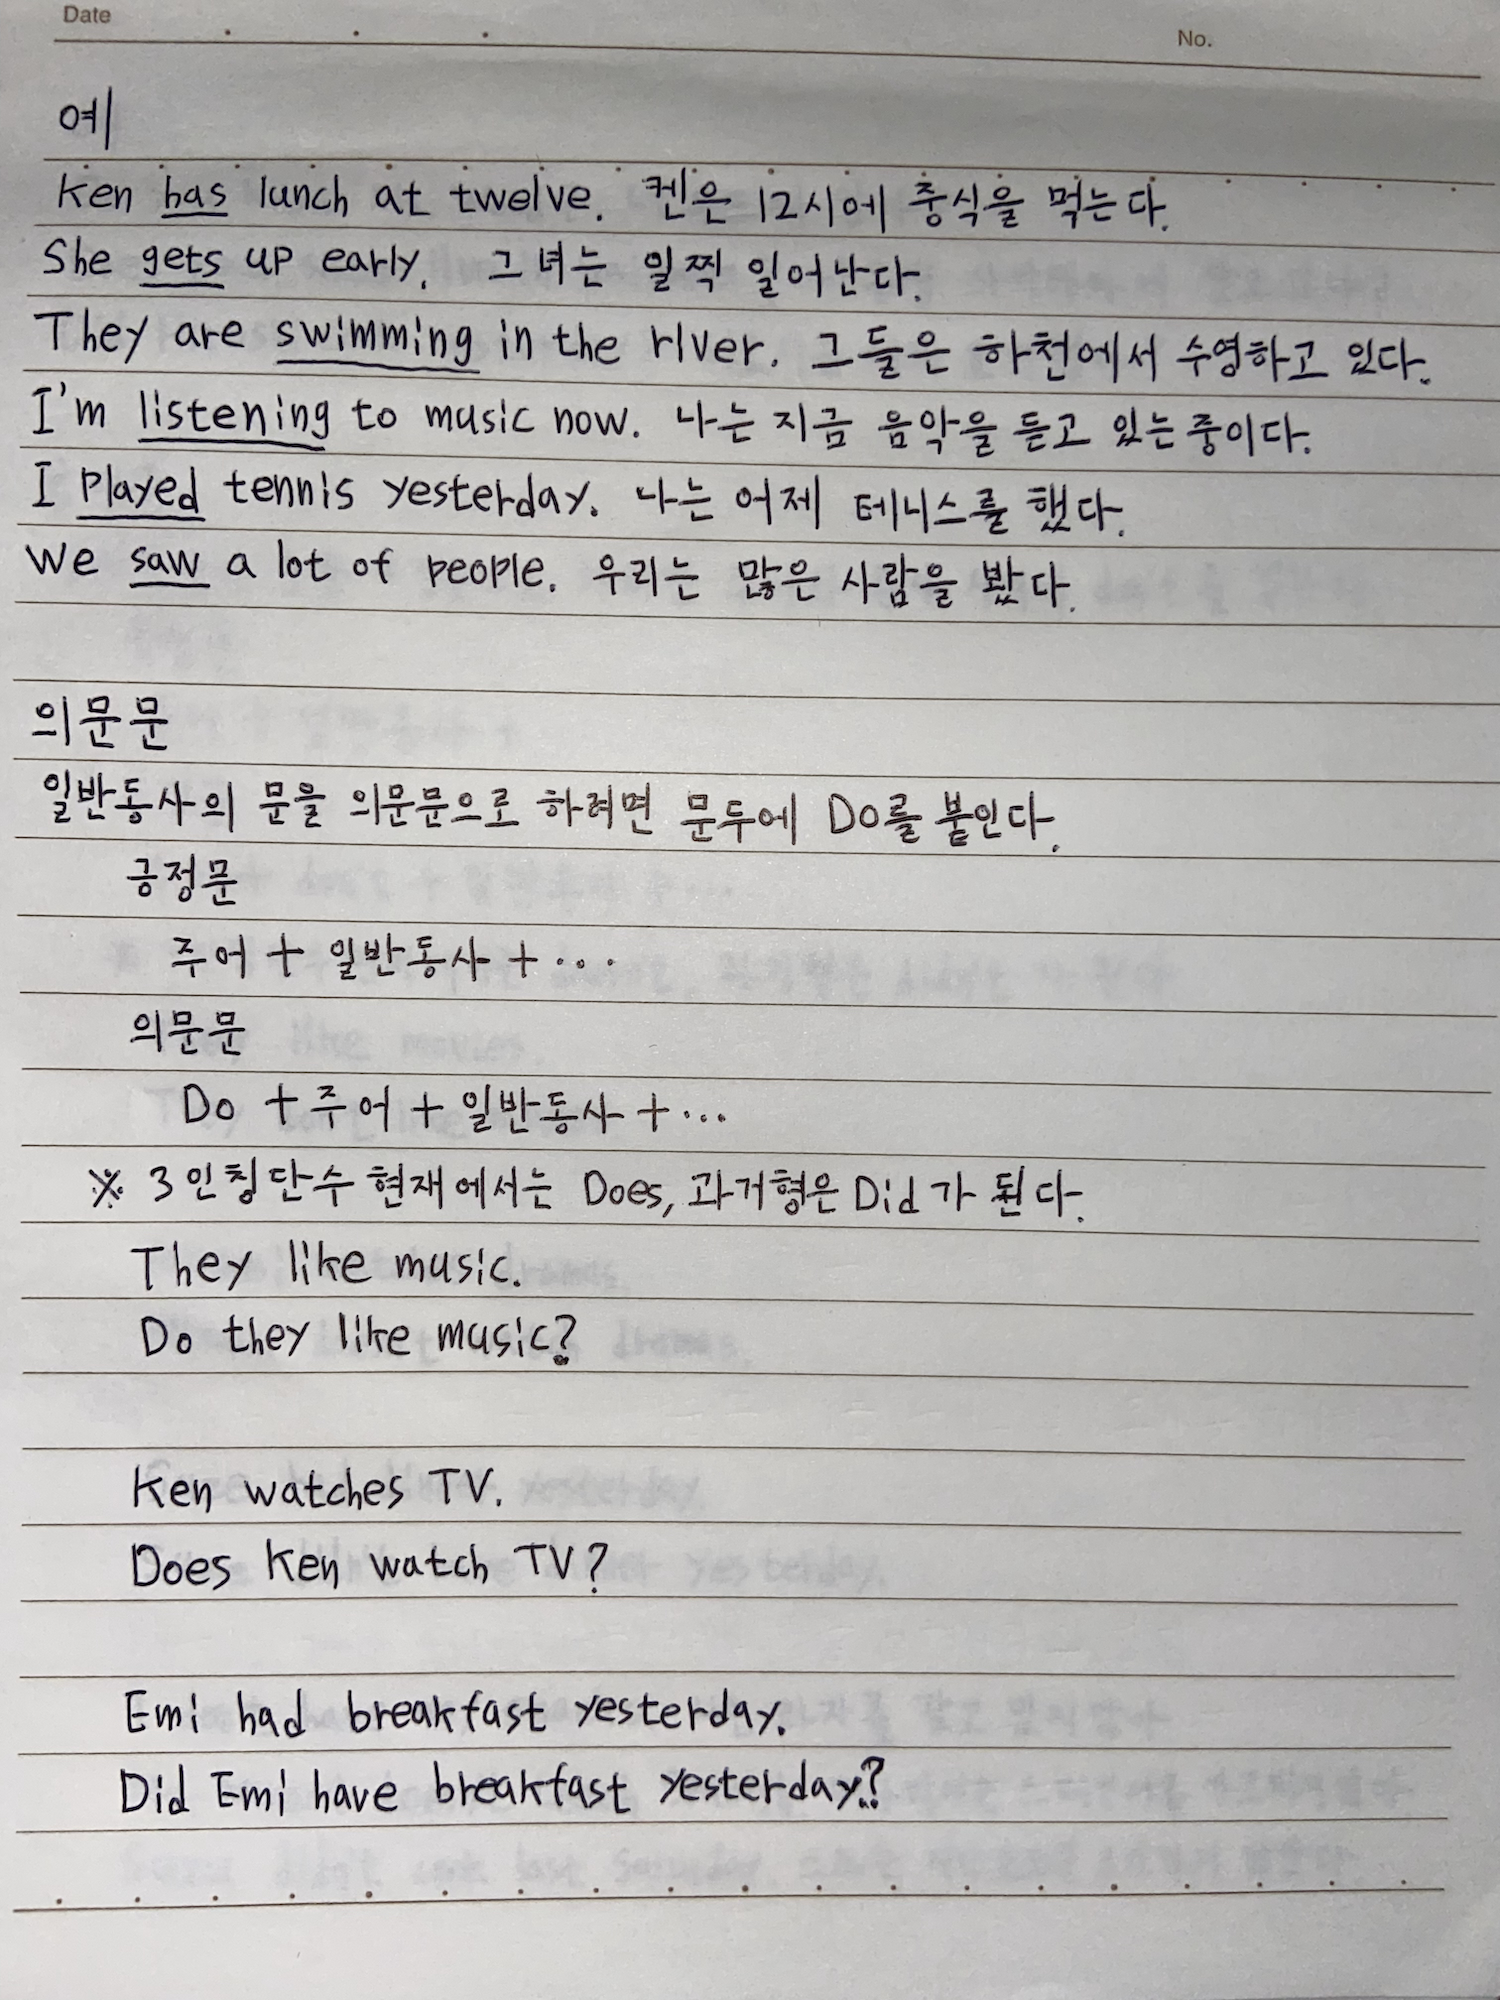 Date
No.
예
Ken has lunch at twelve. 켄은 12시에 중식을 먹는다.
She gets up early. 그녀는 일찍 일어난다.
They are swimming in the river. 그들은 하천에서 수영하고 있다.
I'm listening to music now. 나는 지금 음악을 듣고 있는중이다.
I played tennis yesterday. 나는 어제 테니스를 했다.
We saw a lot of people. 우리는 많은 사람을 봤다.
의문문
일반동사의 문을 의문문으로 하려면 문두에 Do를 붙인다.
긍정문
주어 + 일반동사 + ···
의문문
Do + 주어 + 일반동사 + ···
※ 3인칭단수 현재에서는 Does, 과거형은 Did가 된다.
They like music.
Do they like music?
Ken watches TV.
Does Ken watch TV?
Emi had breakfast yesterday.
Did Emi have breakfast yesterday?